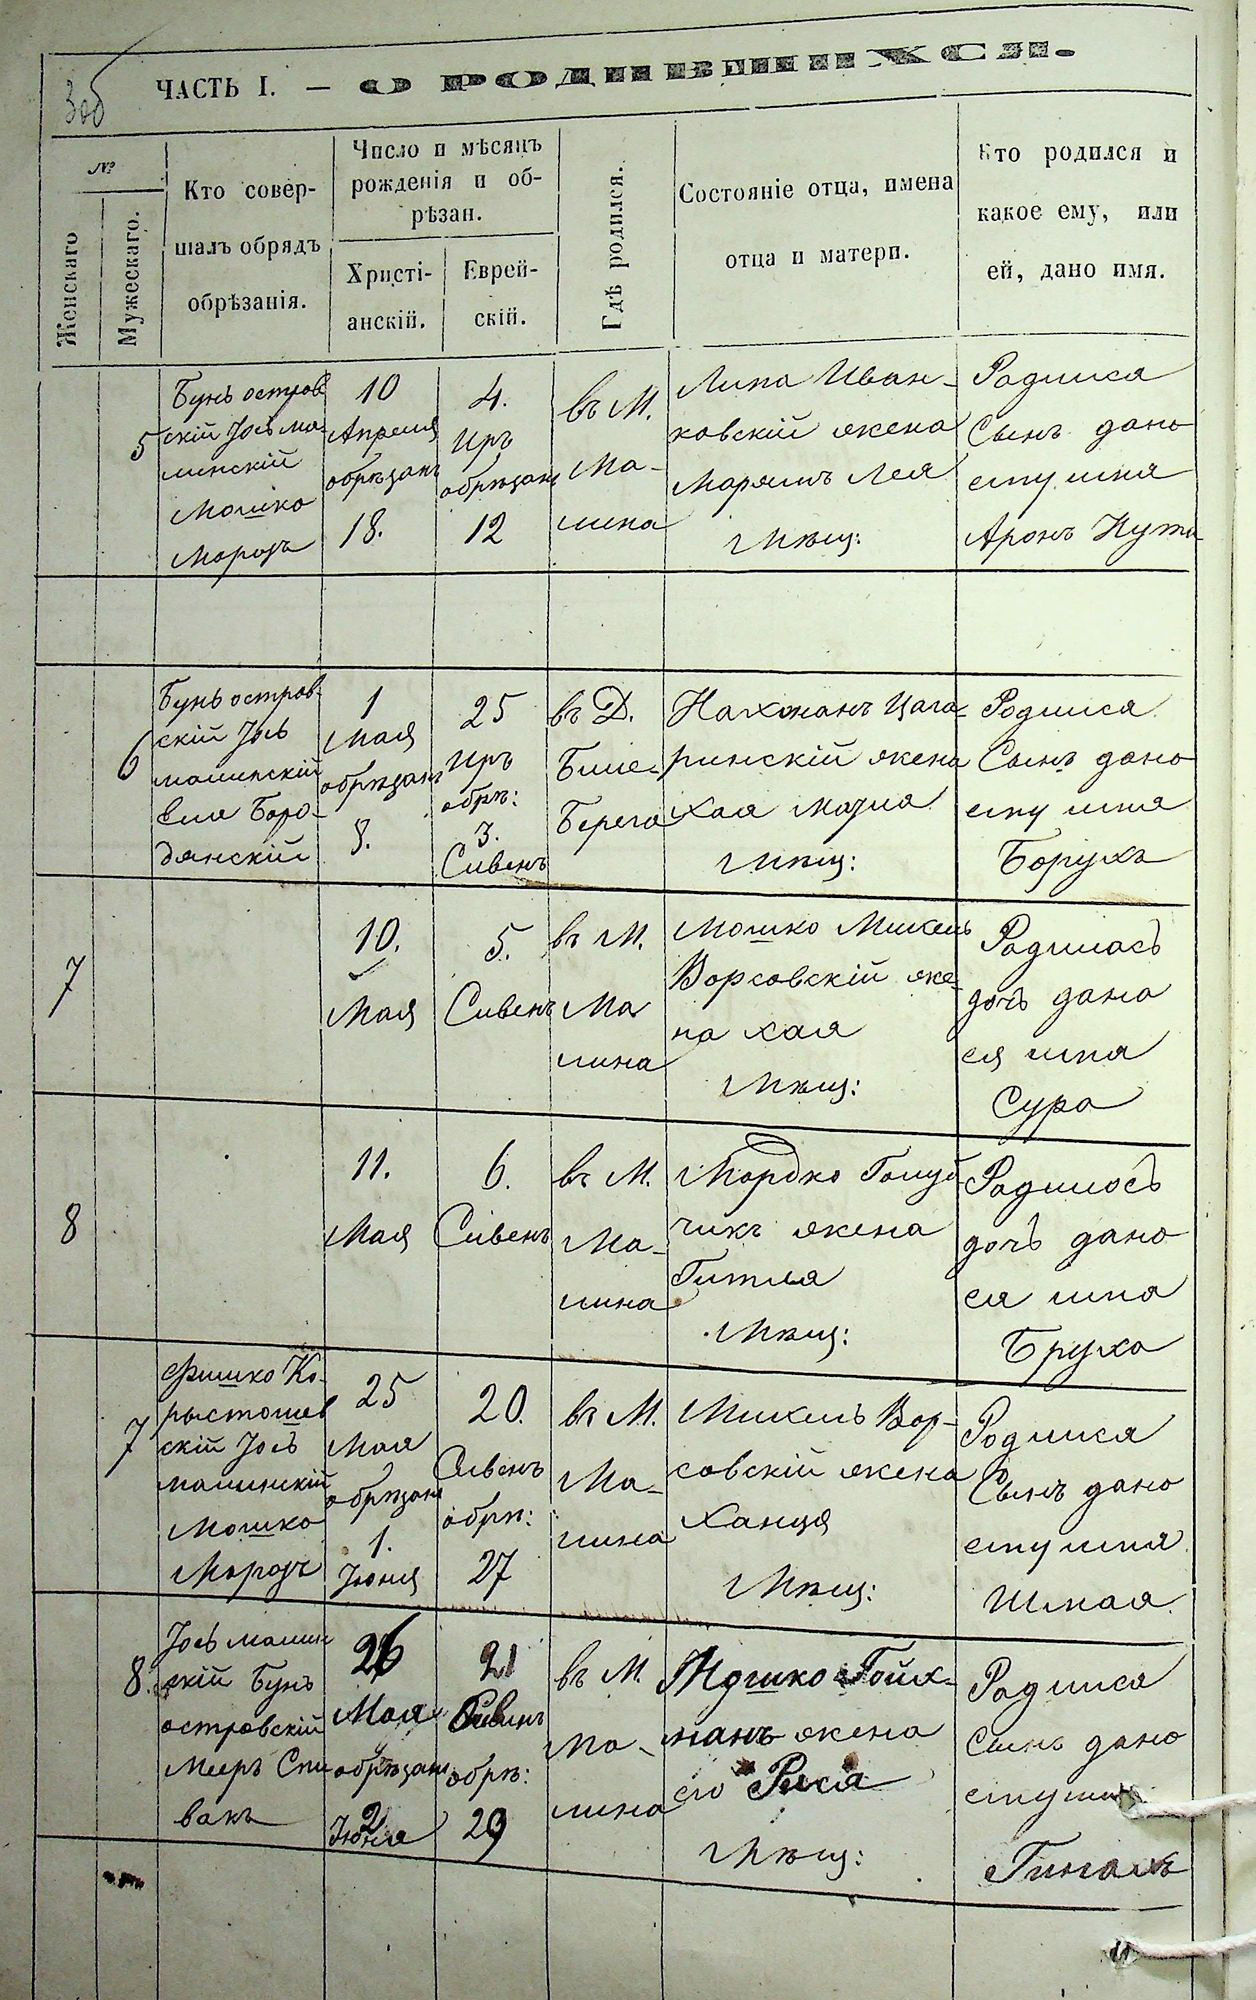 306
ЧАСТЬ I. — О РОДИВШИХСЯ.
№
Женскаго
Мужескаго.
Кто совер-
шалъ обрядъ
обрѣзанія.
Число и мѣсяцъ
рожденія и об-
рѣзан.
Христі-
анскій.
Еврей-
скій.
Гдѣ родился.
Состояніе отца, имена
отца и матери.
Кто родился и
какое ему, или
ей, дано имя.
5
Бунъ остров
скій Йось Ма-
линскій
Мошко
Морозъ
10
Апреля
обрѣзанъ
18.
4.
Иръ
обрѣзанъ
12
въ М.
Ма-
лина
Липа Иван-
ковскій жена
Марямъ Лея
Мѣщ:
Родился
Сынъ дано
ему имя
Аронъ Нута
6
Бунь остров-
скій Йось
малинскій
Боро-
дянскій
1
Мая
обрѣзанъ
8.
25
Иръ
обрѣ:
3.
Сивенъ
въ Д.
Биле-
Берега
Нахонанъ Цага-
ринскій жена
Хая
Мѣщ:
Родился
Сынъ дано
ему имя
Борухъ
7
10.
Мая
5.
Сивенъ
въ М.
Ма
лина
Мошко Микель
Ворсовскій же-
на хая
Мѣщ:
Родилась
дочь дана
ея имя
Сура
8
11.
Мая
6.
Сивенъ
въ М.
Ма-
лина
Мордко Голуб-
чикъ жена
Гитля
Мѣщ:
Родилось
дочь дано
ея имя
Бруха
7
Фишко Ко-
рыстошев
скій Йось
малинскій
Мошко
Морозъ
25
Мая
обрѣзанъ
1.
Июня
20.
Сивенъ
обрѣ:
27
въ М.
Ма-
лина
Микель Вор-
совскій жена
Ханця
Мѣщ:
Родился
Сынъ дано
ему имя
Шмая
8.
Йось малин
скій Бунъ
островскій
Мееръ Спи
вакъ
26
Мая
обрѣзанъ
2
Июня
21
Сивинъ
обрѣ:
29
въ М.
Ма-
лина
Мошко Гойх-
манъ жена
его Рися
Мѣщ:
Родился
Сынъ дано
ему имя